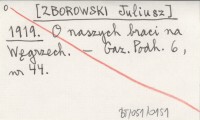 [ZBOROWSKI Juliusz]
1919. O naszych braci na
Węgrzech. – Gaz. Podh. 6,
nr 44.